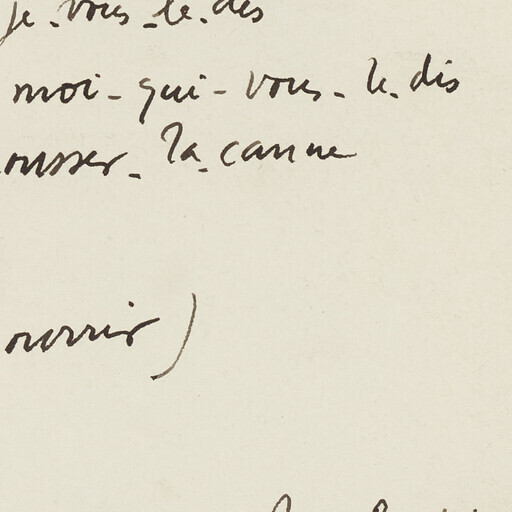 je-vous-le-dis
moi-qui-vous-le-dis
ousser-la-canne
ourrir)